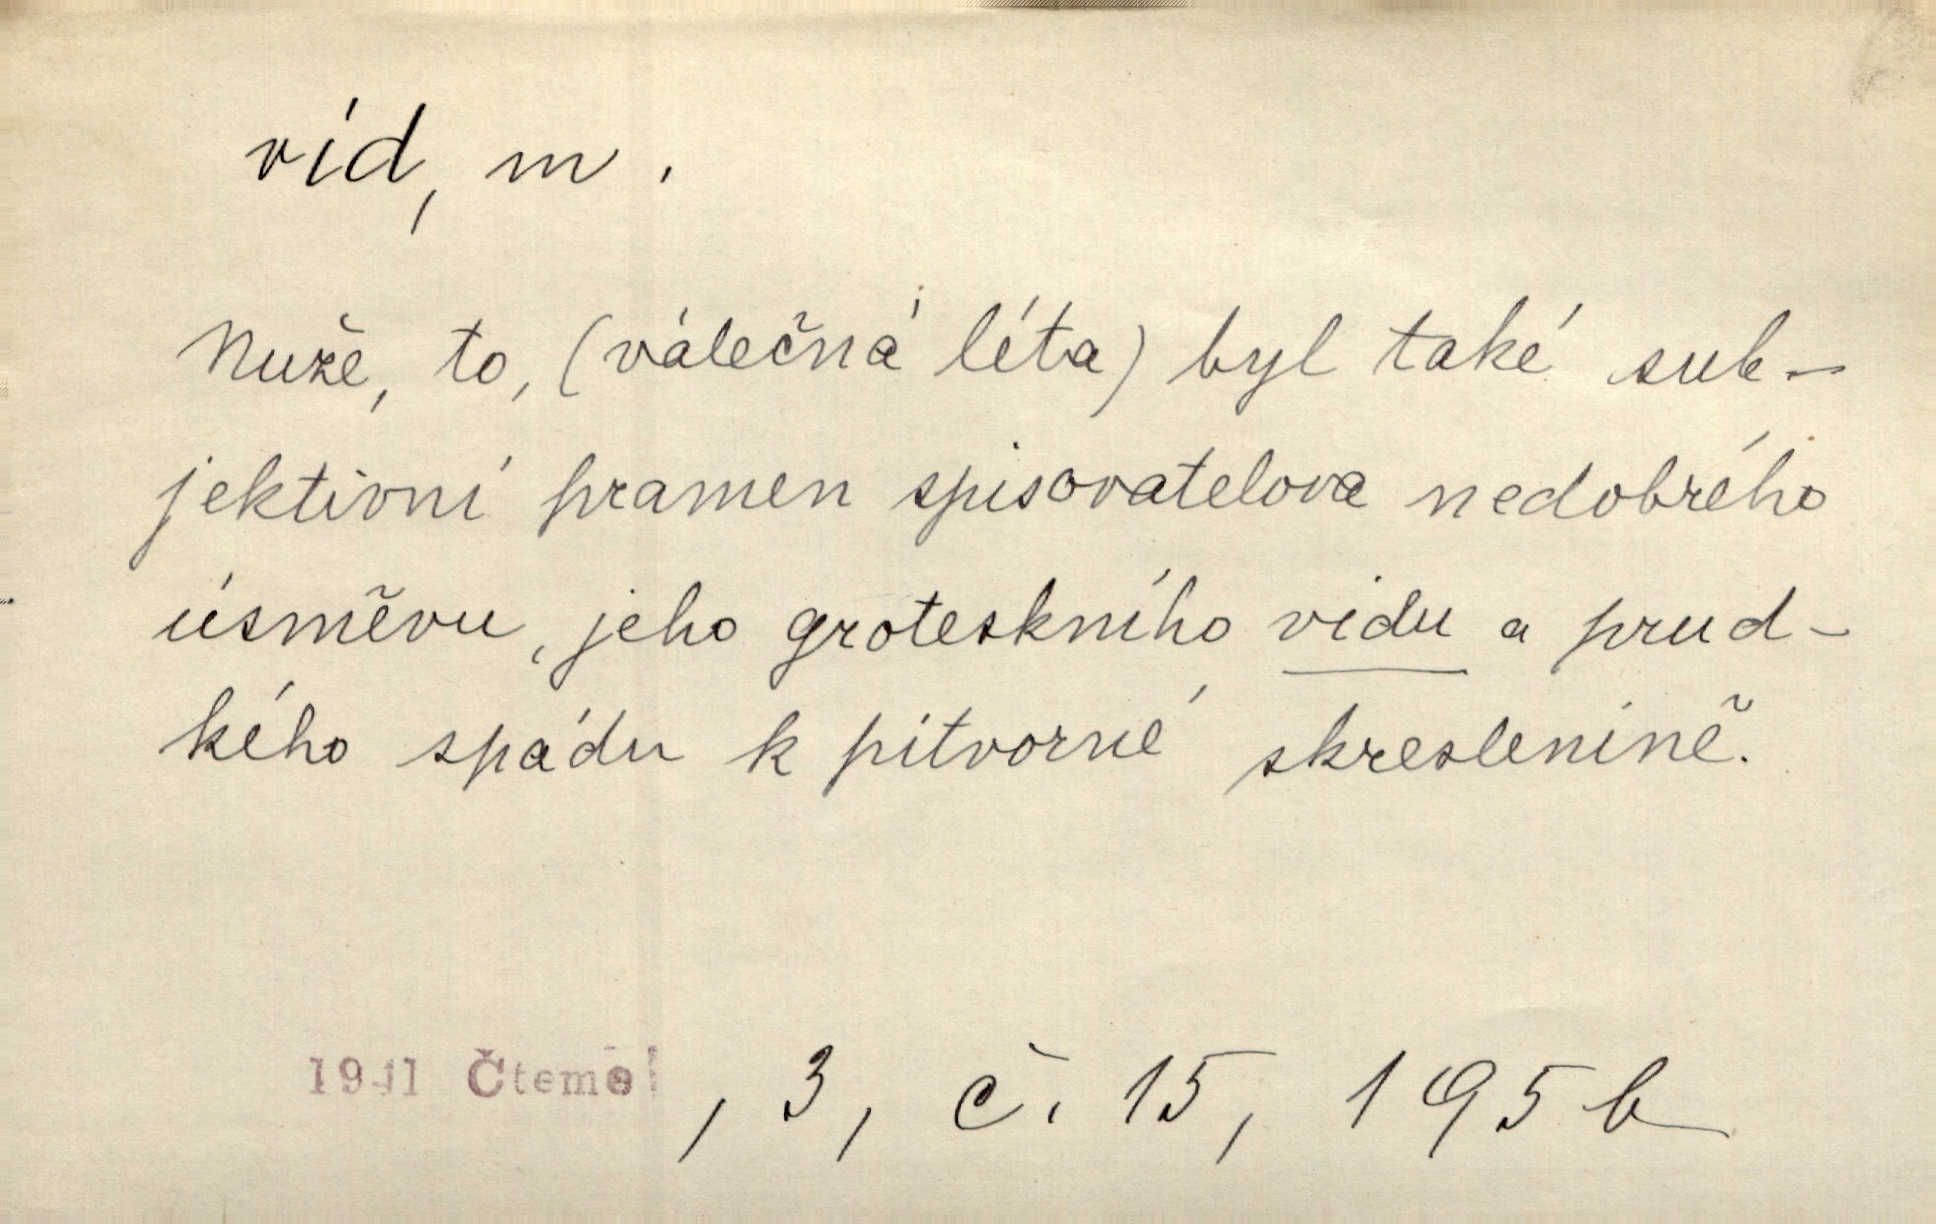 vid, m.
Nuže, to, (válečná léta) byl také sub-
jektivní pramen spisovatelova nedobrého
úsměvu, jeho groteskního vidu a prud-
kého spádu k pitvorné skreslenině.
1941 Čteme, 3, č. 15, 195 b